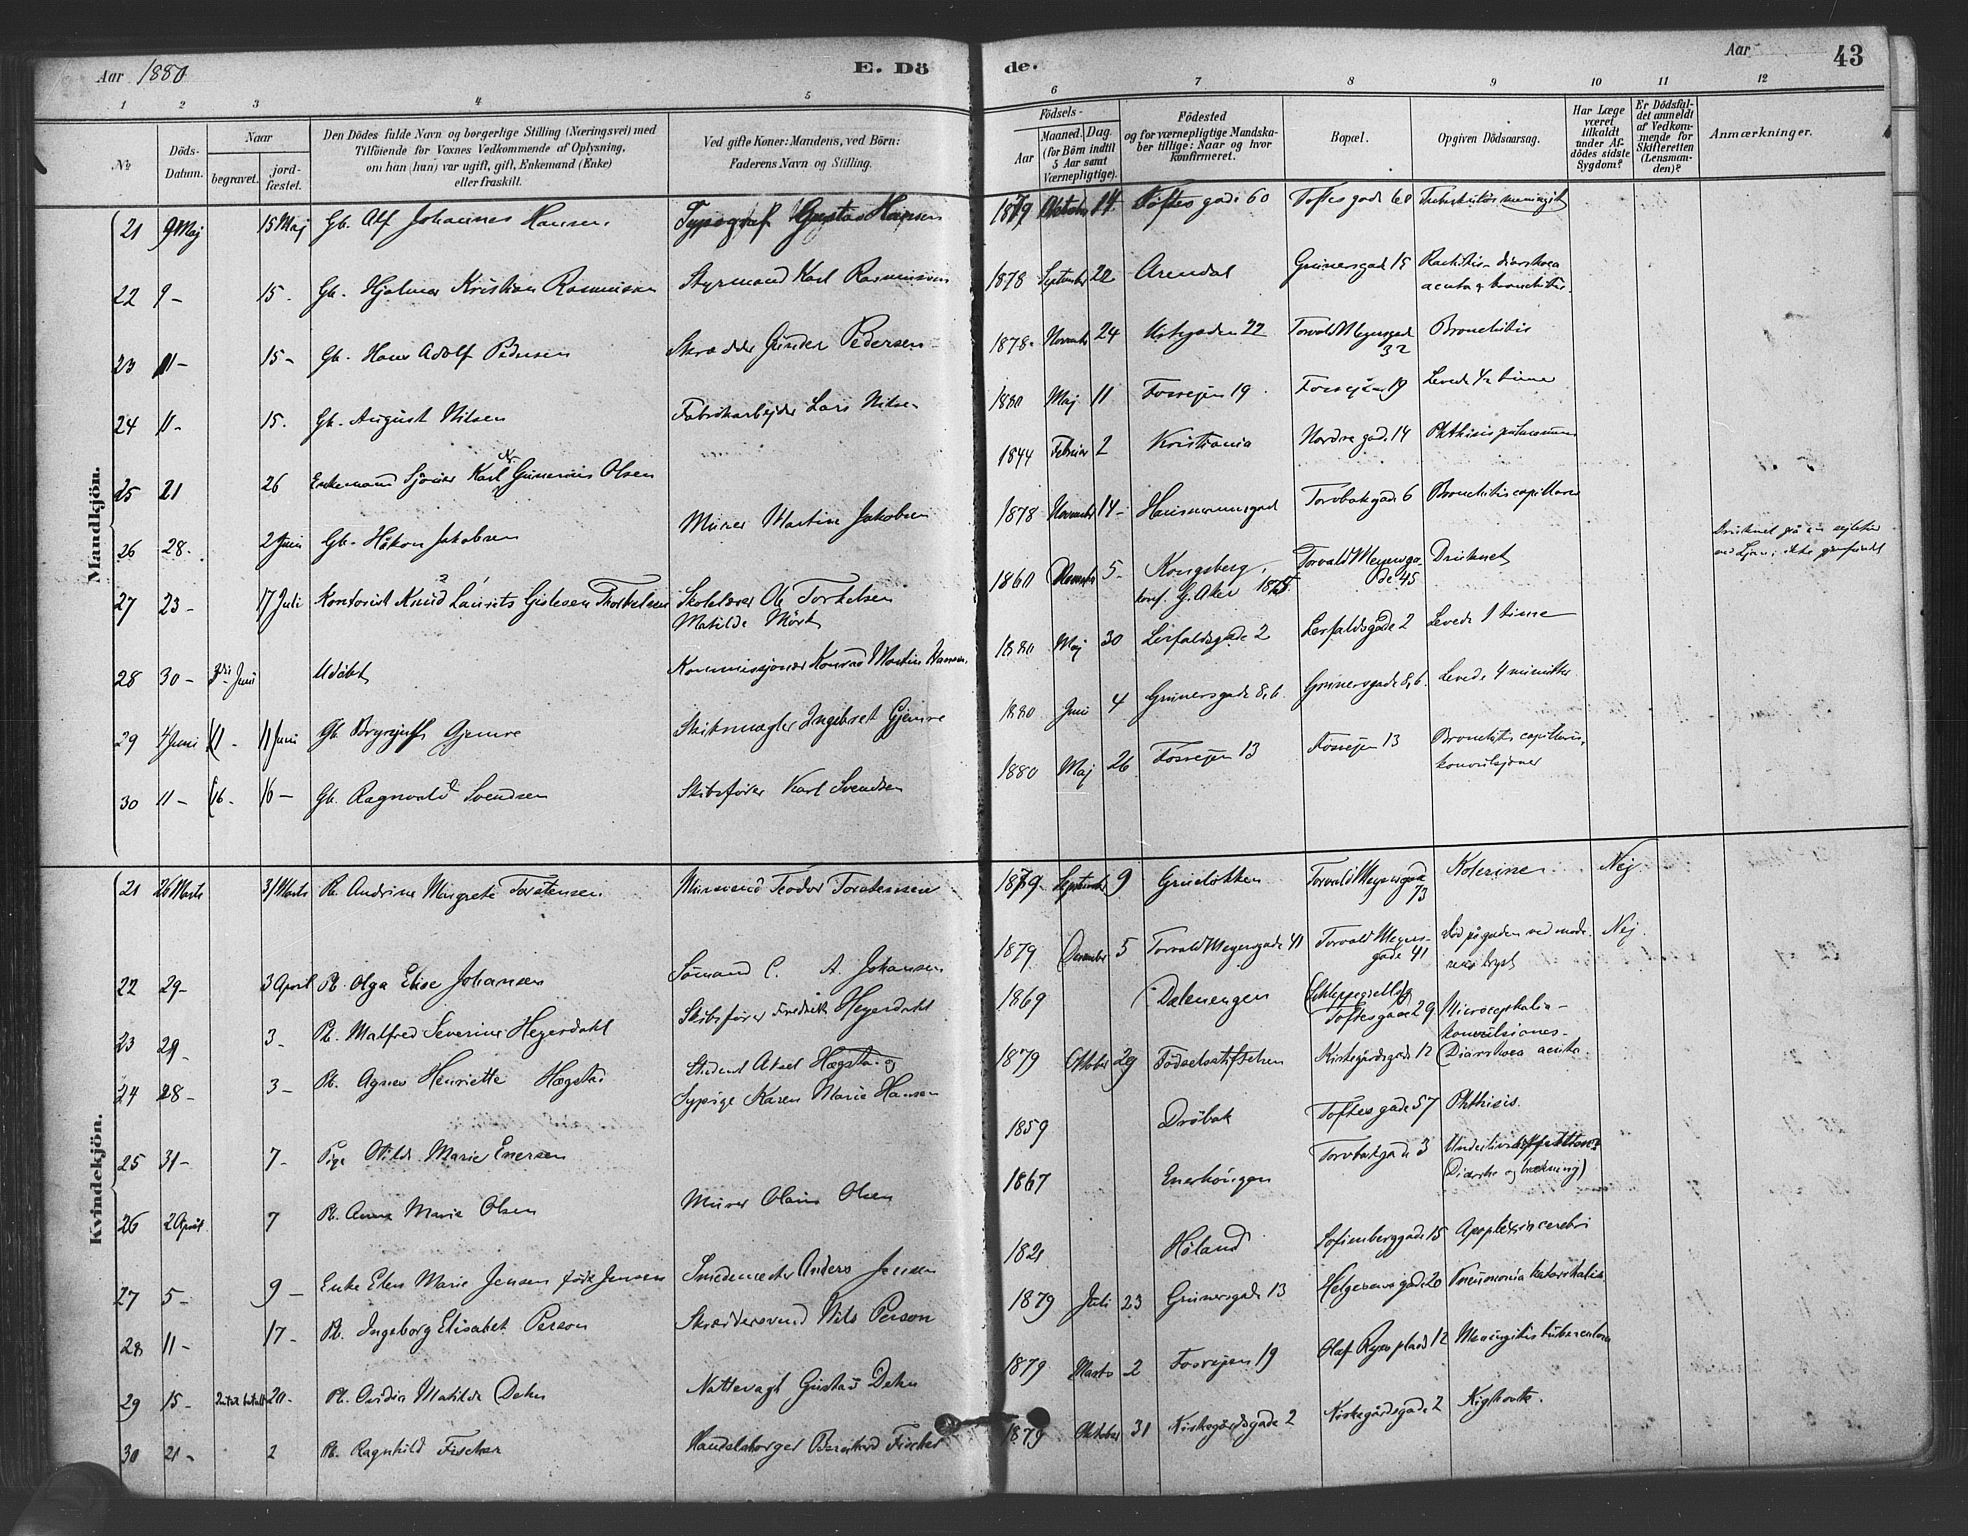 Aar 1880
E. Dö
de.
Aar
43
1 2 3 4 5
6 7 8 9 10 11 12
№
Döds-
Datum.
Naar
begravet.
jord-
fæstet.
Den Dödes fulde Navn og borgerlige Stilling (Næringsvei) med
Tilföiende for Voxnes Vedkommende af Oplysning,
om han (hun) var ugift, gift, Enkemand (Enke)
eller fraskilt.
Ved gifte Koner: Mandens, ved Börn:
Faderens Navn og Stilling.
Födsels-
Aar
Maaned. Dag.
(for Börn indtil
5 Aar samt
Værnepligtige).
Födested
og for værnepligtige Mandska-
ber tillige: Naar og hvor
konfirmeret.
Bopæl.
Opgiven Dödsaarsag.
Har Læge
været
tilkaldt
under Af-
dödes sidste
Sygdom?
Er Dödsfal-
det anmeldt
af Vedkom-
mende for
Skifteretten
(Lensman-
den)?
Anmærkninger.
Mandkjön.
21 9 Maj 15 Maj Gb. Alf Johannes Hansen. Typograf Gustav Hansen 1879 Oktober 14 Toftes gade 60 Toftes gade 60
22 9 - 15. Gb. Hjalmar Kristian Rasmussen Styrmand Karl Rasmussen 1878 September 22 Arendal Grünersgade 15 Rachitis - diarrhoea
acuta & bronchitis.
23 11 - 15 - Gb. Hans Adolf Pedersen Skrædder Gunder Pedersen 1878 November 24 22 Torvald Meyersgade
32 Bronchitis
24 11 - 15. Gb. August Nilsen Fabrikarbejder Lars Nilsen 1880 Maj 11 Fossvejen 19. Fossvejen 19 Levede ½ time
25 21 26 Enkemand Karl Gunerius Olsen 1844 Februar 2 Kristiania Nordre gade 14 Phthisis pulmonum
26 28. 2 Juni Gb. Håkon Jakobsen Murer Martin Jakobsen 1878 November 14 - Hausmannsgad Torvbakgade 6 Bronchitis capillaris
27 23 - 17 Juli Kontorist Knud Laurits Gislesen Thorkelsen Skolelærer Ole Torkelsen
Matilde Mört 1860 5 - Kongsberg,
konf. G. Aker 1875. Torvald Meyersga-
de 45 Druknet
Druknet på en sejltur
ved Ljan; ikke gjenfundet
28 30 - 3die Juni Udöbt Kommissjonær Konrad Martin Hansen. 1880 Maj 30 Lerfaldsgade 2 Lerfaldsgade 2 Levede 1 time
29 4 Juni 11 - 11 Juni Gb. Gjemre Skibsmægler Ingebret Gjemre 1880 Juni 4 Grünersgade 8, b. Grünersgade 8, b. Levede 4 minutter
30 11 - 16 - 16 - Gb. Ragnvald Svendsen Skibsförer Karl Svendsen 1880 Maj 26 Fossvejen 13 Fossvejen 13 Bronchitis capillaris,
konvulsjoner
Kvindekjön.
21 26 Marts 31 Marts Pb. Andrine Margrete Torstensen Mursvend Teodor Torstensen 1879 September 9 Grüelökken Torvald Meyersgade
73 Kolerine Nej
22 29 - 3 April Pb. Olga Elise Johansen Sömand C. A. Johansen 1879 December 5 Torvald Meyersgade 41 Torvald Meyers-
gade 41 Död på gaden ved mode-
rens bryst Nej.
23 29 - 3 - Pb. Malfred Severine Heyerdahl Skibsförer Fredrik Heyerdahl 1869 Dælenengen (Schleppegrellsg
Toftesgade 29 Microcephalia -
konvulsiones -
24 28 - 3 - Pb. Agnes Henriette Hægstad Student Aksel Hægstad og
Sypige Karen Marie Hansen 1879 Oktober 29 Födselsstiftelsen Kirkegårdsgade 12 Diarrhoea acuta.
25 31 - 7 - Pige Otilde Marie Enersen 1859 Dröbak Toftes gade 57 Phthisis.
26 2 April 7 Pb. Anna Marie Olsen Murer Olaus Olsen 1867 Enerhöugen Torvbakgade 3
(Diarrhe og brækning)
27 5 - 9 - Enke Elen Marie Jensen födt Jensen Smedemester Anders Jensen 1821 Höland Sofienberggade 15 Apoplexia cerebri
28 11 - 17 - Pb. Ingeborg Elisabet Person Skræddersvend Nils Person 1879 Juli 23 Grünersgade 13 Helgesensgade 20 Pneumonia katarrhalis
29 15 - 20 - Pb. Matilde Dehn Nattevagt Gustav Dehn 1879 Marts 2 Fossvejen 19 Olaf Ryes plads 12 Meningitis tuberculosa
30 21 - 2 Pb. Ragnhild Fischer Handelsborger Bernhard Fischer 1879 Oktober 31 Kirkegårdsgade 2 Kirkegårdsgade 2 Kighoste.